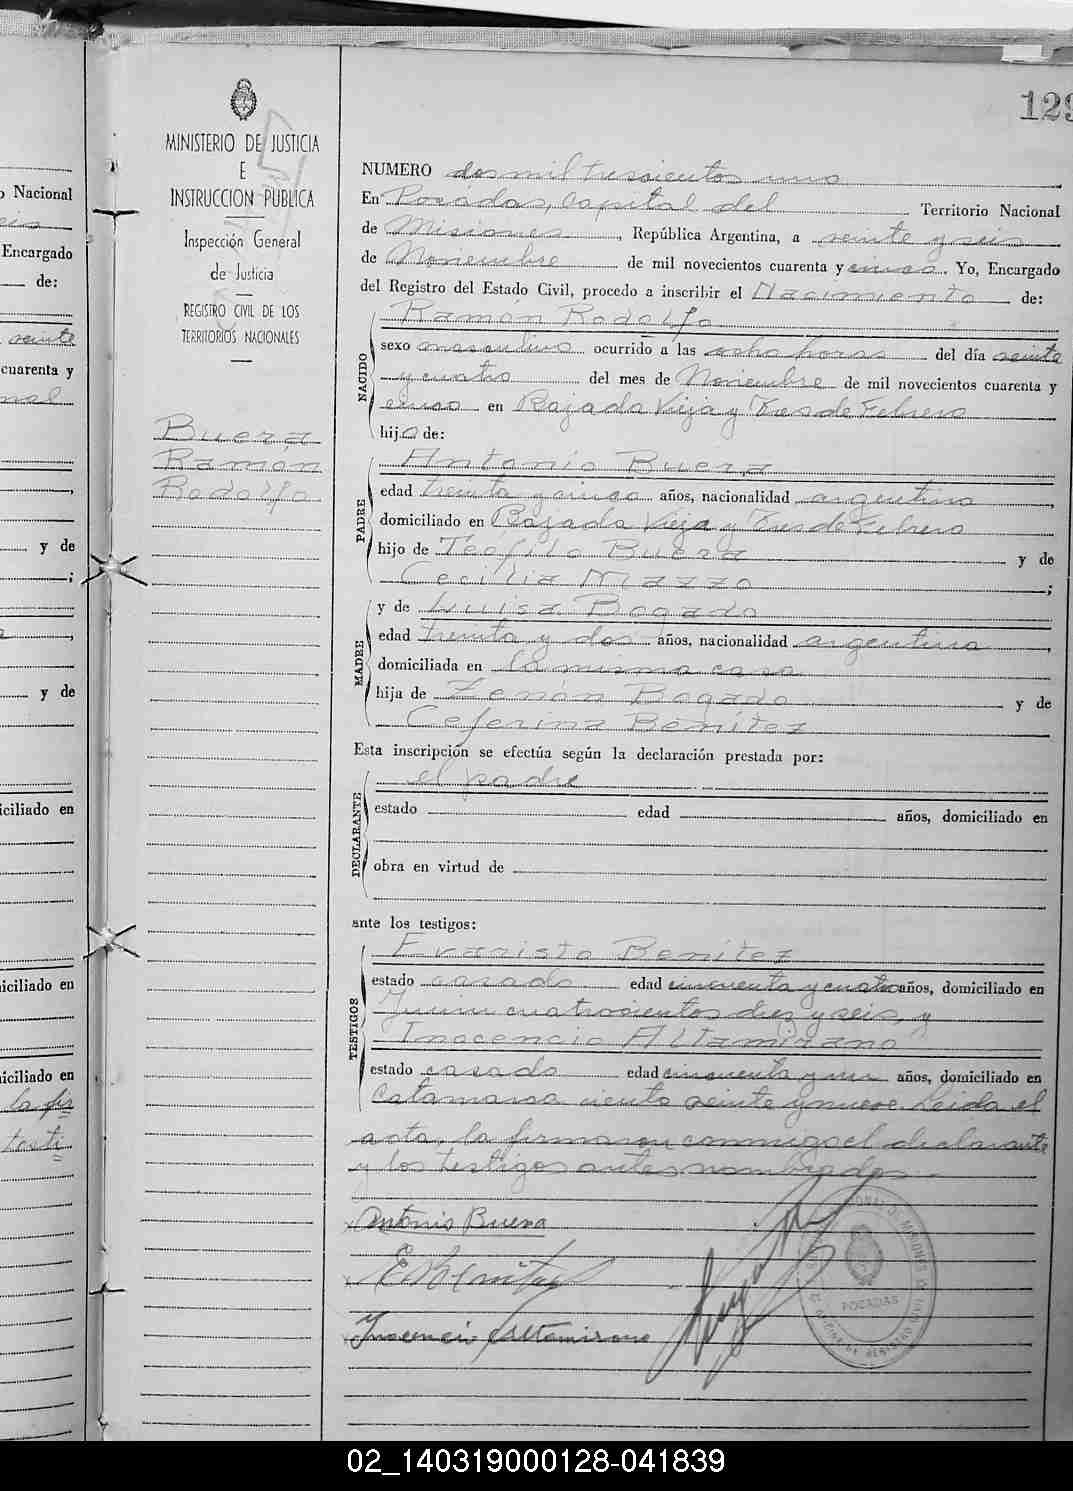 129
MINISTERIO DE JUSTICIA
E
INSTRUCCION PUBLICA
Inspección General
de Justicia
REGISTRO CIVIL DE LOS
TERRITORIOS NACIONALES
Buera
Ramón
Rodolfo
NUMERO dos mil trescientos uno
En Posadas, Capital del Territorio Nacional
de Misiones, República Argentina, a veinte y seis
de Noviembre de mil novecientos cuarenta y cinco. Yo, Encargado
del Registro del Estado Civil, procedo a inscribir el Nacimiento de:
NACIDO
Ramón Rodolfo
sexo masculino ocurrido a las ocho horas del día veinte
y cuatro del mes de Noviembre de mil novecientos cuarenta y
cinco en Bajada Vieja y Tres de Febrero
hijo de:
PADRE
Antonio Buera
edad treinta y cinco años, nacionalidad argentino,
domiciliado en Bajada Vieja y Tres de Febrero
hijo de Teófilo Buera y de
Cecilia Mazzo;
MADRE
y de Luisa Bogado
edad treinta y dos años, nacionalidad argentina,
domiciliada en la misma casa
hija de Zenón Bogado y de
Ceferina Benitez
Esta inscripción se efectúa según la declaración prestada por:
DECLARANTE
el padre
estado edad años, domiciliado en
obra en virtud de
ante los testigos:
TESTIGOS
Evaristo Benitez
estado casado edad cincuenta y cuatro años, domiciliado en
Junin cuatrocientos diez y seis, y
Inocencio Altamirano
estado casado edad cincuenta y un años, domiciliado en
Catamarca ciento veinte y nueve. Leida el
acta, la firmaron conmigo el declarante
y los testigos antes nombrados.
Antonio Buera
E. Benitez
Inocencio Altamirano
POSADAS
o Nacional
Encargado
de:
veinte
cuarenta y
y de
;
y de
iciliado en
iciliado en
iciliado en
la fir
testi
02_140319000128-041839